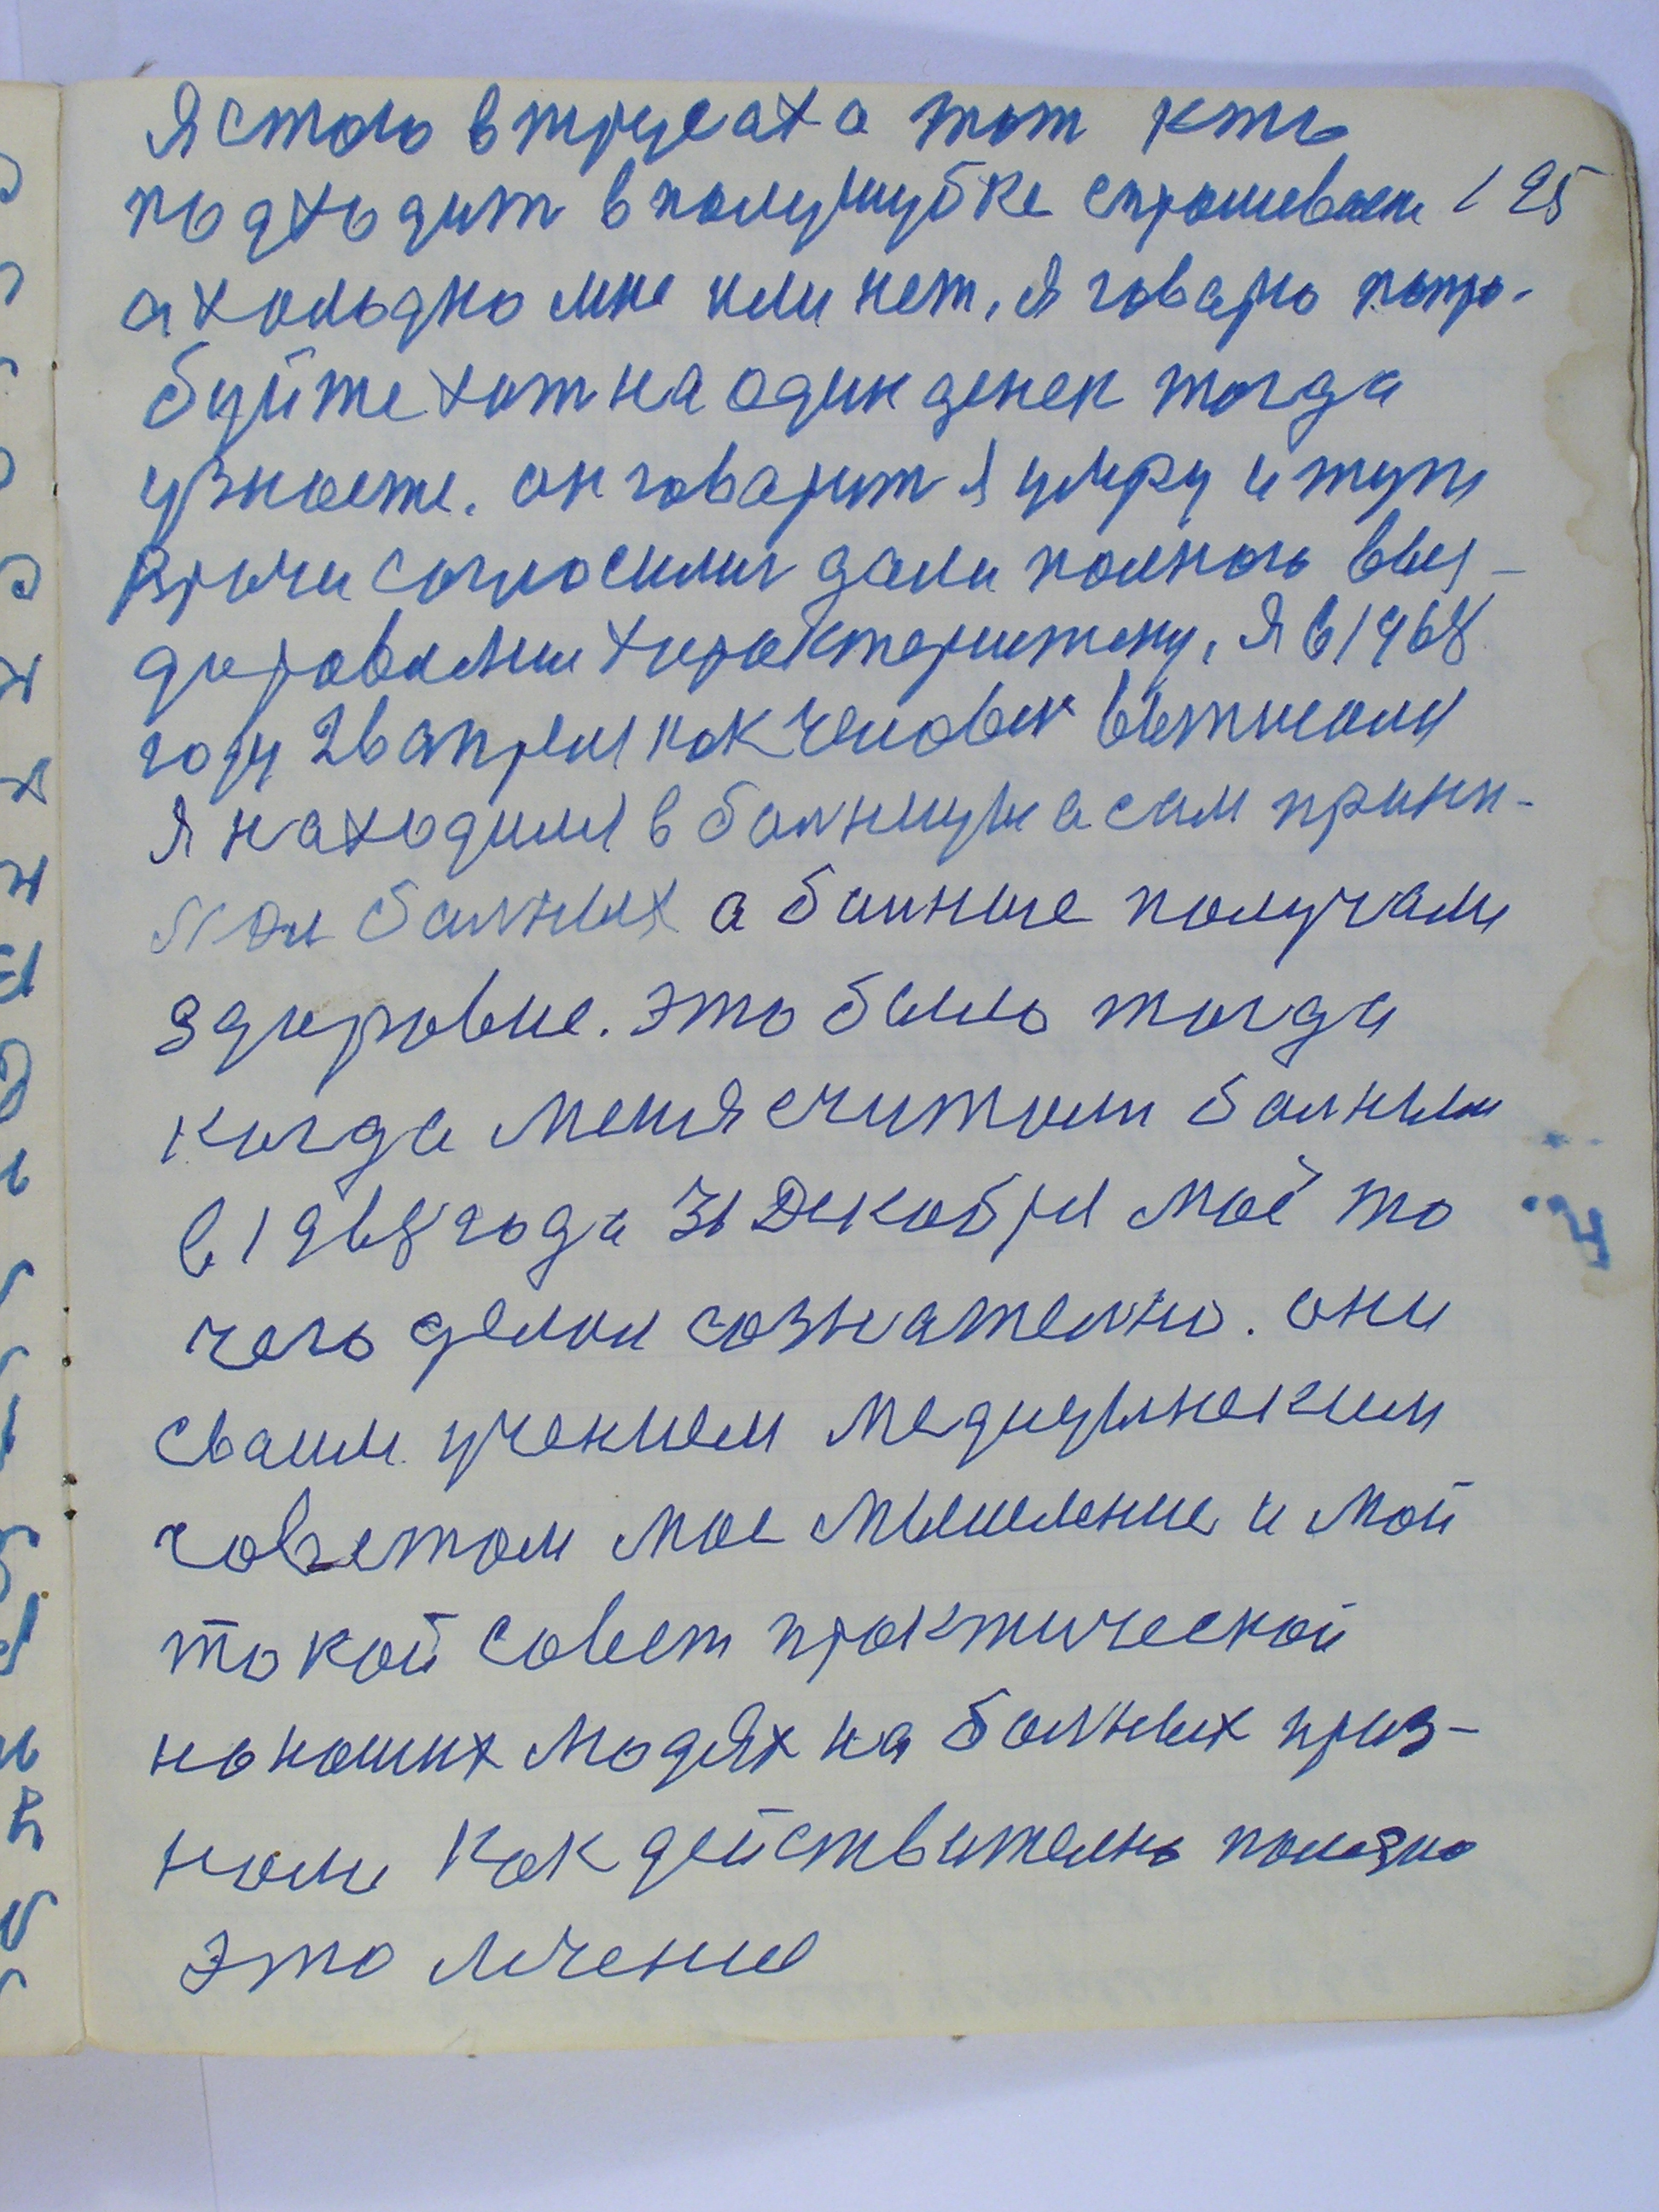 Я стою в трусах а тот кто
подходит в полушубке спрошевает 195
а холодно мне или нет, я говарю попро-
буйте хот на один денек тогда
узнаете. он говарит я умру и тут
врачи согласилис дали полного выз-
доровлении характеритику, Я в 1968
году 26 апреля как человек
Я находился в болницы а сам прини-
мал болных а болные получали
здоровие. это было тогда
когда меня считали болным
с 1968 года 31 Декабря моё то
чего делал сознателно. они
сваим учением медицынским
советом мое мышление и мой
токой совет практической
на наших людях на болных приз-
нали как действително полезно
это лечение